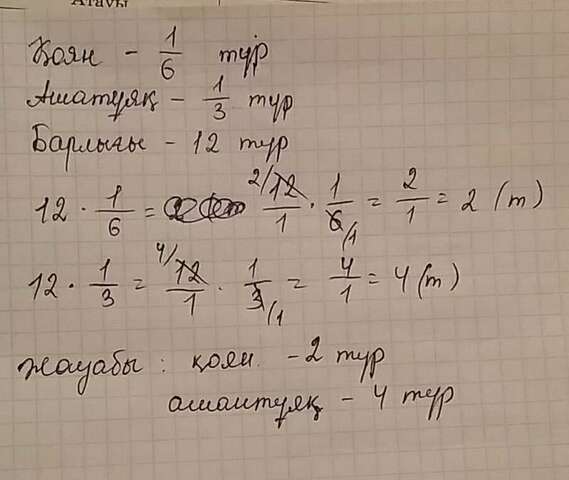 Атауы
Қоян - 1/6 түр
Ашатұяқ - 1/3 түр
Барлығы - 12 түр
12 · 1/6 = 12/1 · 1/6 = 2/1 = 2 (т)
12 · 1/3 = 12/1 · 1/3 = 4/1 = 4 (т)
жауабы : қоян. - 2 түр
ашатұяқ - 4 түр